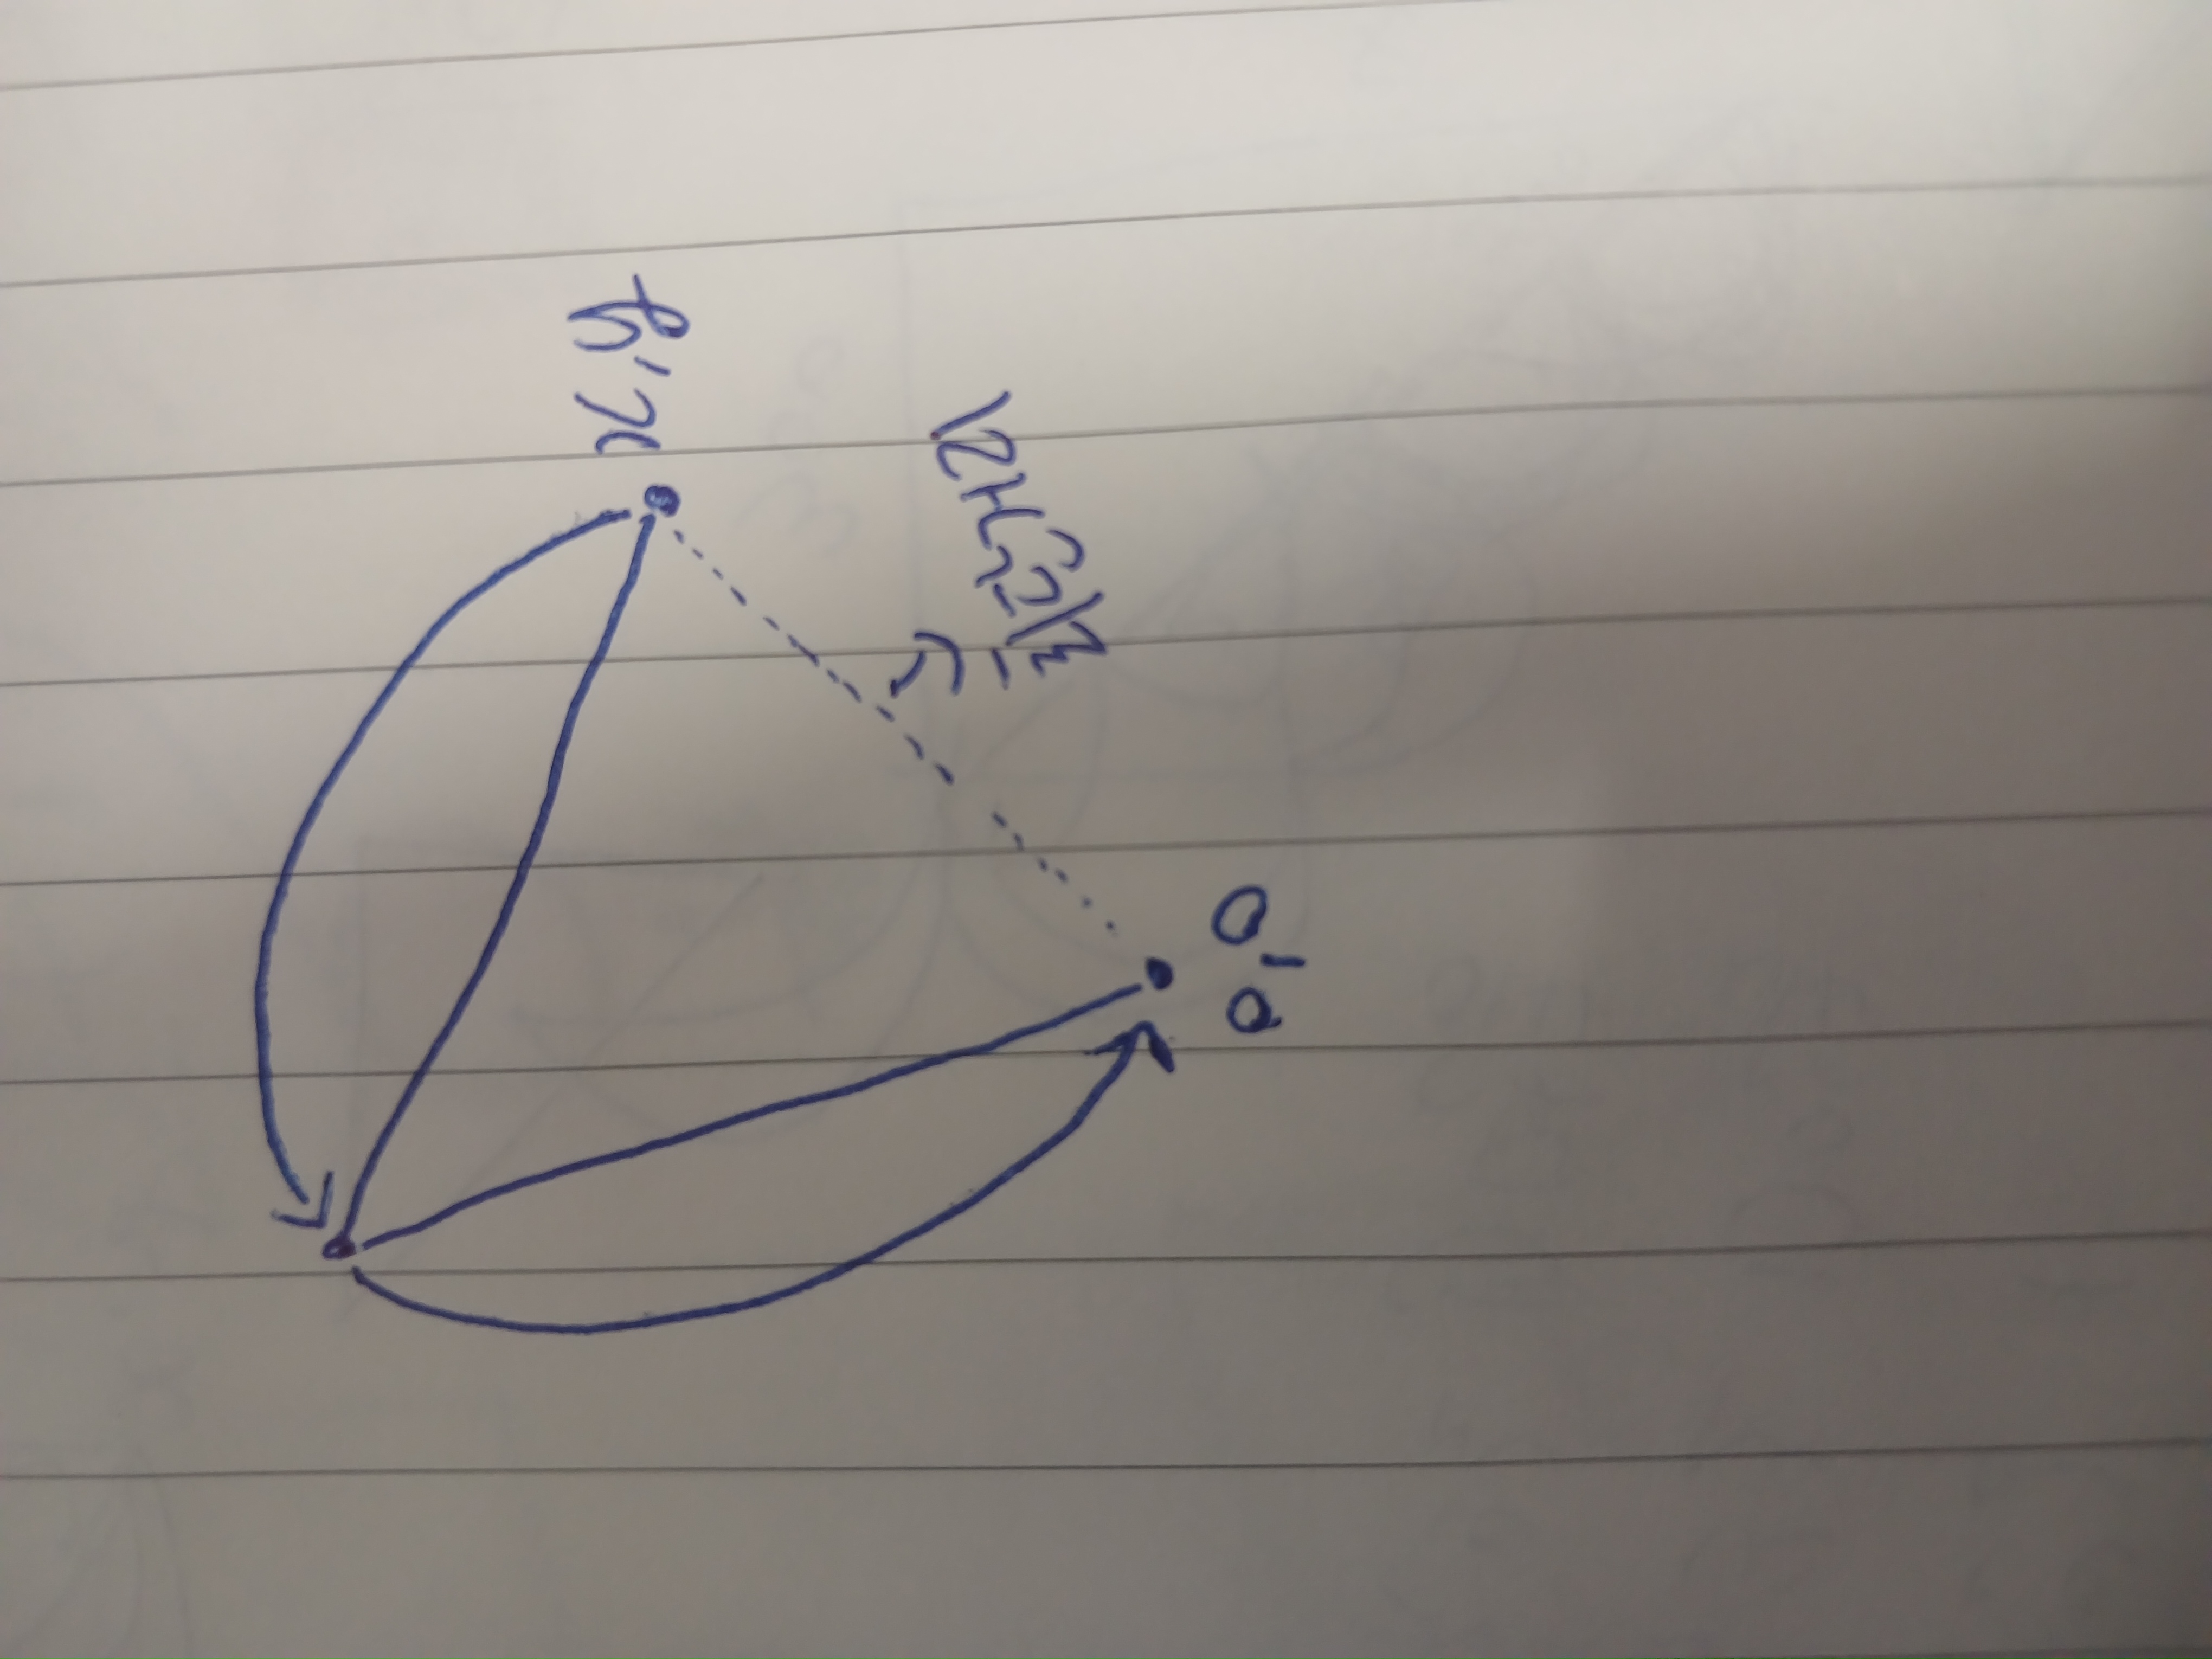 x, y
최단거리
0, 0